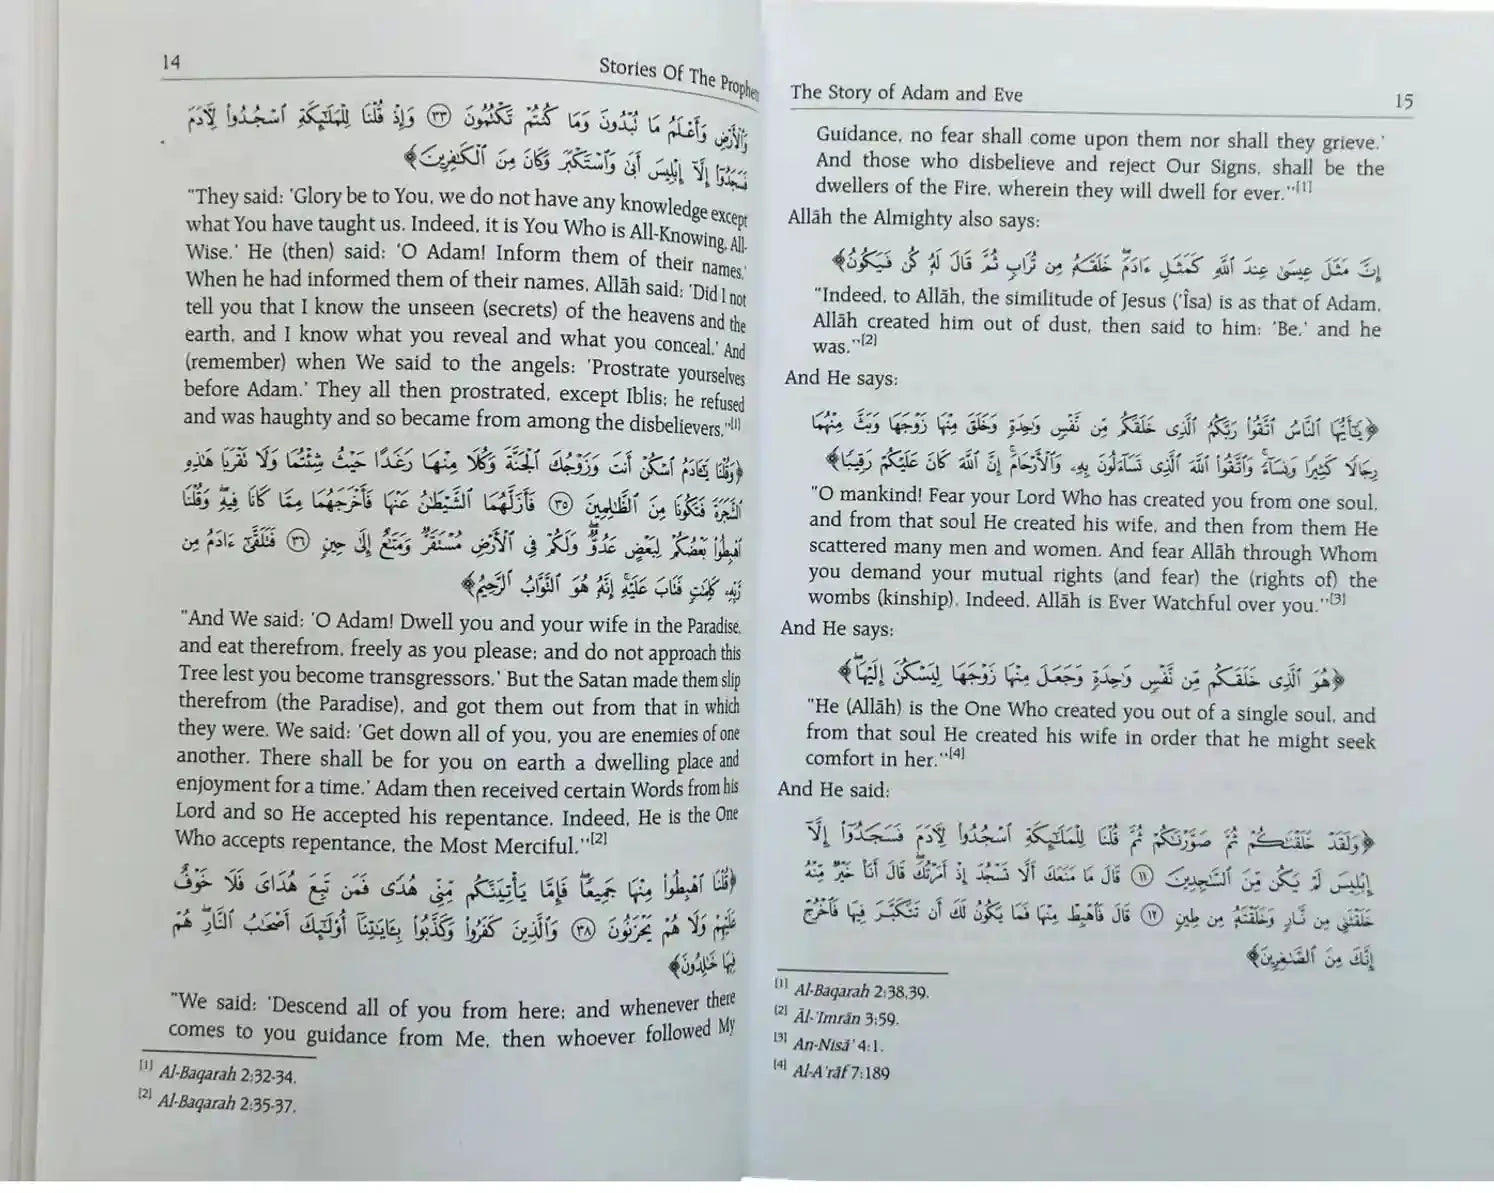 14
Stories Of The Prophets
وَٱلْأَرْضِ وَأَعْلَمُ مَا نُبْدُونَ وَمَا كُنتُمْ تَكْتُمُونَ ٣٣ وَإِذْ قُلْنَا لِلْمَلَٰٓئِكَةِ ٱسْجُدُوا۟ لِـَٔادَمَ
فَسَجَدُوٓا۟ إِلَّآ إِبْلِيسَ أَبَىٰ وَٱسْتَكْبَرَ وَكَانَ مِنَ ٱلْكَٰفِرِينَ﴾
"They said: 'Glory be to You, we do not have any knowledge except
what You have taught us. Indeed, it is You Who is All-Knowing, All-
Wise.' He (then) said: 'O Adam! Inform them of their names.'
When he had informed them of their names, Allāh said: 'Did I not
tell you that I know the unseen (secrets) of the heavens and the
earth, and I know what you reveal and what you conceal.' And
(remember) when We said to the angels: 'Prostrate yourselves
before Adam.' They all then prostrated, except Iblis; he refused
and was haughty and so became from among the disbelievers."[1]
﴿وَقُلْنَا يَٰٓـَٔادَمُ ٱسْكُنْ أَنتَ وَزَوْجُكَ ٱلْجَنَّةَ وَكُلَا مِنْهَا رَغَدًا حَيْثُ شِئْتُمَا وَلَا تَقْرَبَا هَٰذِهِ
ٱلشَّجَرَةَ فَتَكُونَا مِنَ ٱلظَّٰلِمِينَ ٣٥ فَأَزَلَّهُمَا ٱلشَّيْطَٰنُ عَنْهَا فَأَخْرَجَهُمَا مِمَّا كَانَا فِيهِ ۖ وَقُلْنَا
ٱهْبِطُوا۟ بَعْضُكُمْ لِبَعْضٍ عَدُوٌّ ۖ وَلَكُمْ فِى ٱلْأَرْضِ مُسْتَقَرٌّ وَمَتَٰعٌ إِلَىٰ حِينٍ ٣٦ فَتَلَقَّىٰٓ ءَادَمُ مِن
رَّبِّهِۦ كَلِمَٰتٍ فَتَابَ عَلَيْهِ ۚ إِنَّهُۥ هُوَ ٱلتَّوَّابُ ٱلرَّحِيمُ﴾
"And We said: 'O Adam! Dwell you and your wife in the Paradise,
and eat therefrom, freely as you please; and do not approach this
Tree lest you become transgressors.' But the Satan made them slip
therefrom (the Paradise), and got them out from that in which
they were. We said: 'Get down all of you, you are enemies of one
another. There shall be for you on earth a dwelling place and
enjoyment for a time.' Adam then received certain Words from his
Lord and so He accepted his repentance. Indeed, He is the One
Who accepts repentance, the Most Merciful."[2]
﴿قُلْنَا ٱهْبِطُوا۟ مِنْهَا جَمِيعًا ۖ فَإِمَّا يَأْتِيَنَّكُم مِّنِّى هُدًى فَمَن تَبِعَ هُدَاىَ فَلَا خَوْفٌ
عَلَيْهِمْ وَلَا هُمْ يَحْزَنُونَ ٣٨ وَٱلَّذِينَ كَفَرُوا۟ وَكَذَّبُوا۟ بِـَٔايَٰتِنَآ أُو۟لَٰٓئِكَ أَصْحَٰبُ ٱلنَّارِ ۖ هُمْ
فِيهَا خَٰلِدُونَ﴾
"We said: 'Descend all of you from here; and whenever there
comes to you guidance from Me, then whoever followed My
[1] Al-Baqarah 2:32-34.
[2] Al-Baqarah 2:35-37.
The Story of Adam and Eve
15
Guidance, no fear shall come upon them nor shall they grieve.'
And those who disbelieve and reject Our Signs, shall be the
dwellers of the Fire, wherein they will dwell for ever."[1]
Allāh the Almighty also says:
إِنَّ مَثَلَ عِيسَىٰ عِندَ ٱللَّهِ كَمَثَلِ ءَادَمَ ۖ خَلَقَهُۥ مِن تُرَابٍ ثُمَّ قَالَ لَهُۥ كُن فَيَكُونُ﴾
"Indeed, to Allāh, the similitude of Jesus ('Îsa) is as that of Adam.
Allāh created him out of dust, then said to him: 'Be.' and he
was."[2]
And He says:
﴿يَٰٓأَيُّهَا ٱلنَّاسُ ٱتَّقُوا۟ رَبَّكُمُ ٱلَّذِى خَلَقَكُم مِّن نَّفْسٍ وَٰحِدَةٍ وَخَلَقَ مِنْهَا زَوْجَهَا وَبَثَّ مِنْهُمَا
رِجَالًا كَثِيرًا وَنِسَآءً ۚ وَٱتَّقُوا۟ ٱللَّهَ ٱلَّذِى تَسَآءَلُونَ بِهِۦ وَٱلْأَرْحَامَ ۚ إِنَّ ٱللَّهَ كَانَ عَلَيْكُمْ رَقِيبًا﴾
"O mankind! Fear your Lord Who has created you from one soul,
and from that soul He created his wife, and then from them He
scattered many men and women. And fear Allāh through Whom
you demand your mutual rights (and fear) the (rights of) the
wombs (kinship). Indeed, Allāh is Ever Watchful over you."[3]
And He says:
﴿هُوَ ٱلَّذِى خَلَقَكُم مِّن نَّفْسٍ وَٰحِدَةٍ وَجَعَلَ مِنْهَا زَوْجَهَا لِيَسْكُنَ إِلَيْهَا ۖ﴾
"He (Allāh) is the One Who created you out of a single soul, and
from that soul He created his wife in order that he might seek
comfort in her."[4]
And He said:
﴿وَلَقَدْ خَلَقْنَٰكُمْ ثُمَّ صَوَّرْنَٰكُمْ ثُمَّ قُلْنَا لِلْمَلَٰٓئِكَةِ ٱسْجُدُوا۟ لِـَٔادَمَ فَسَجَدُوٓا۟ إِلَّآ
إِبْلِيسَ لَمْ يَكُن مِّنَ ٱلسَّٰجِدِينَ ١١ قَالَ مَا مَنَعَكَ أَلَّا تَسْجُدَ إِذْ أَمَرْتُكَ ۖ قَالَ أَنَا۠ خَيْرٌ مِّنْهُ
خَلَقْتَنِى مِن نَّارٍ وَخَلَقْتَهُۥ مِن طِينٍ ١٢ قَالَ فَٱهْبِطْ مِنْهَا فَمَا يَكُونُ لَكَ أَن تَتَكَبَّرَ فِيهَا فَٱخْرُجْ
إِنَّكَ مِنَ ٱلصَّٰغِرِينَ﴾
[1] Al-Baqarah 2:38,39.
[2] Āl-'Imrān 3:59.
[3] An-Nisā' 4:1.
[4] Al-A'rāf 7:189